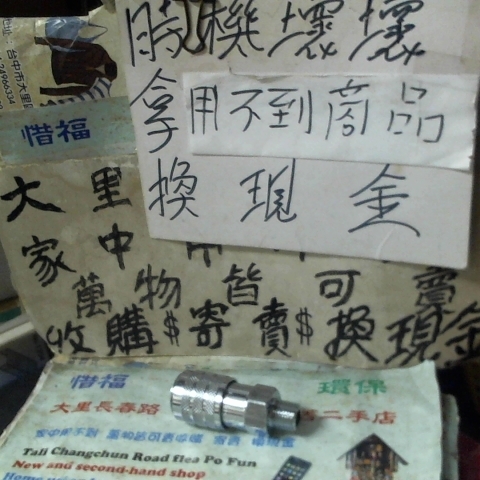 時機壞壞
拿用不到商品
換現金
台中市大里
惜福
大里
家中用
萬物皆可賣
收購$寄賣$換現金
惜福 環保
大里長春路 二手店
Tali Changchun Road flea Po Fun
New and second-hand shop